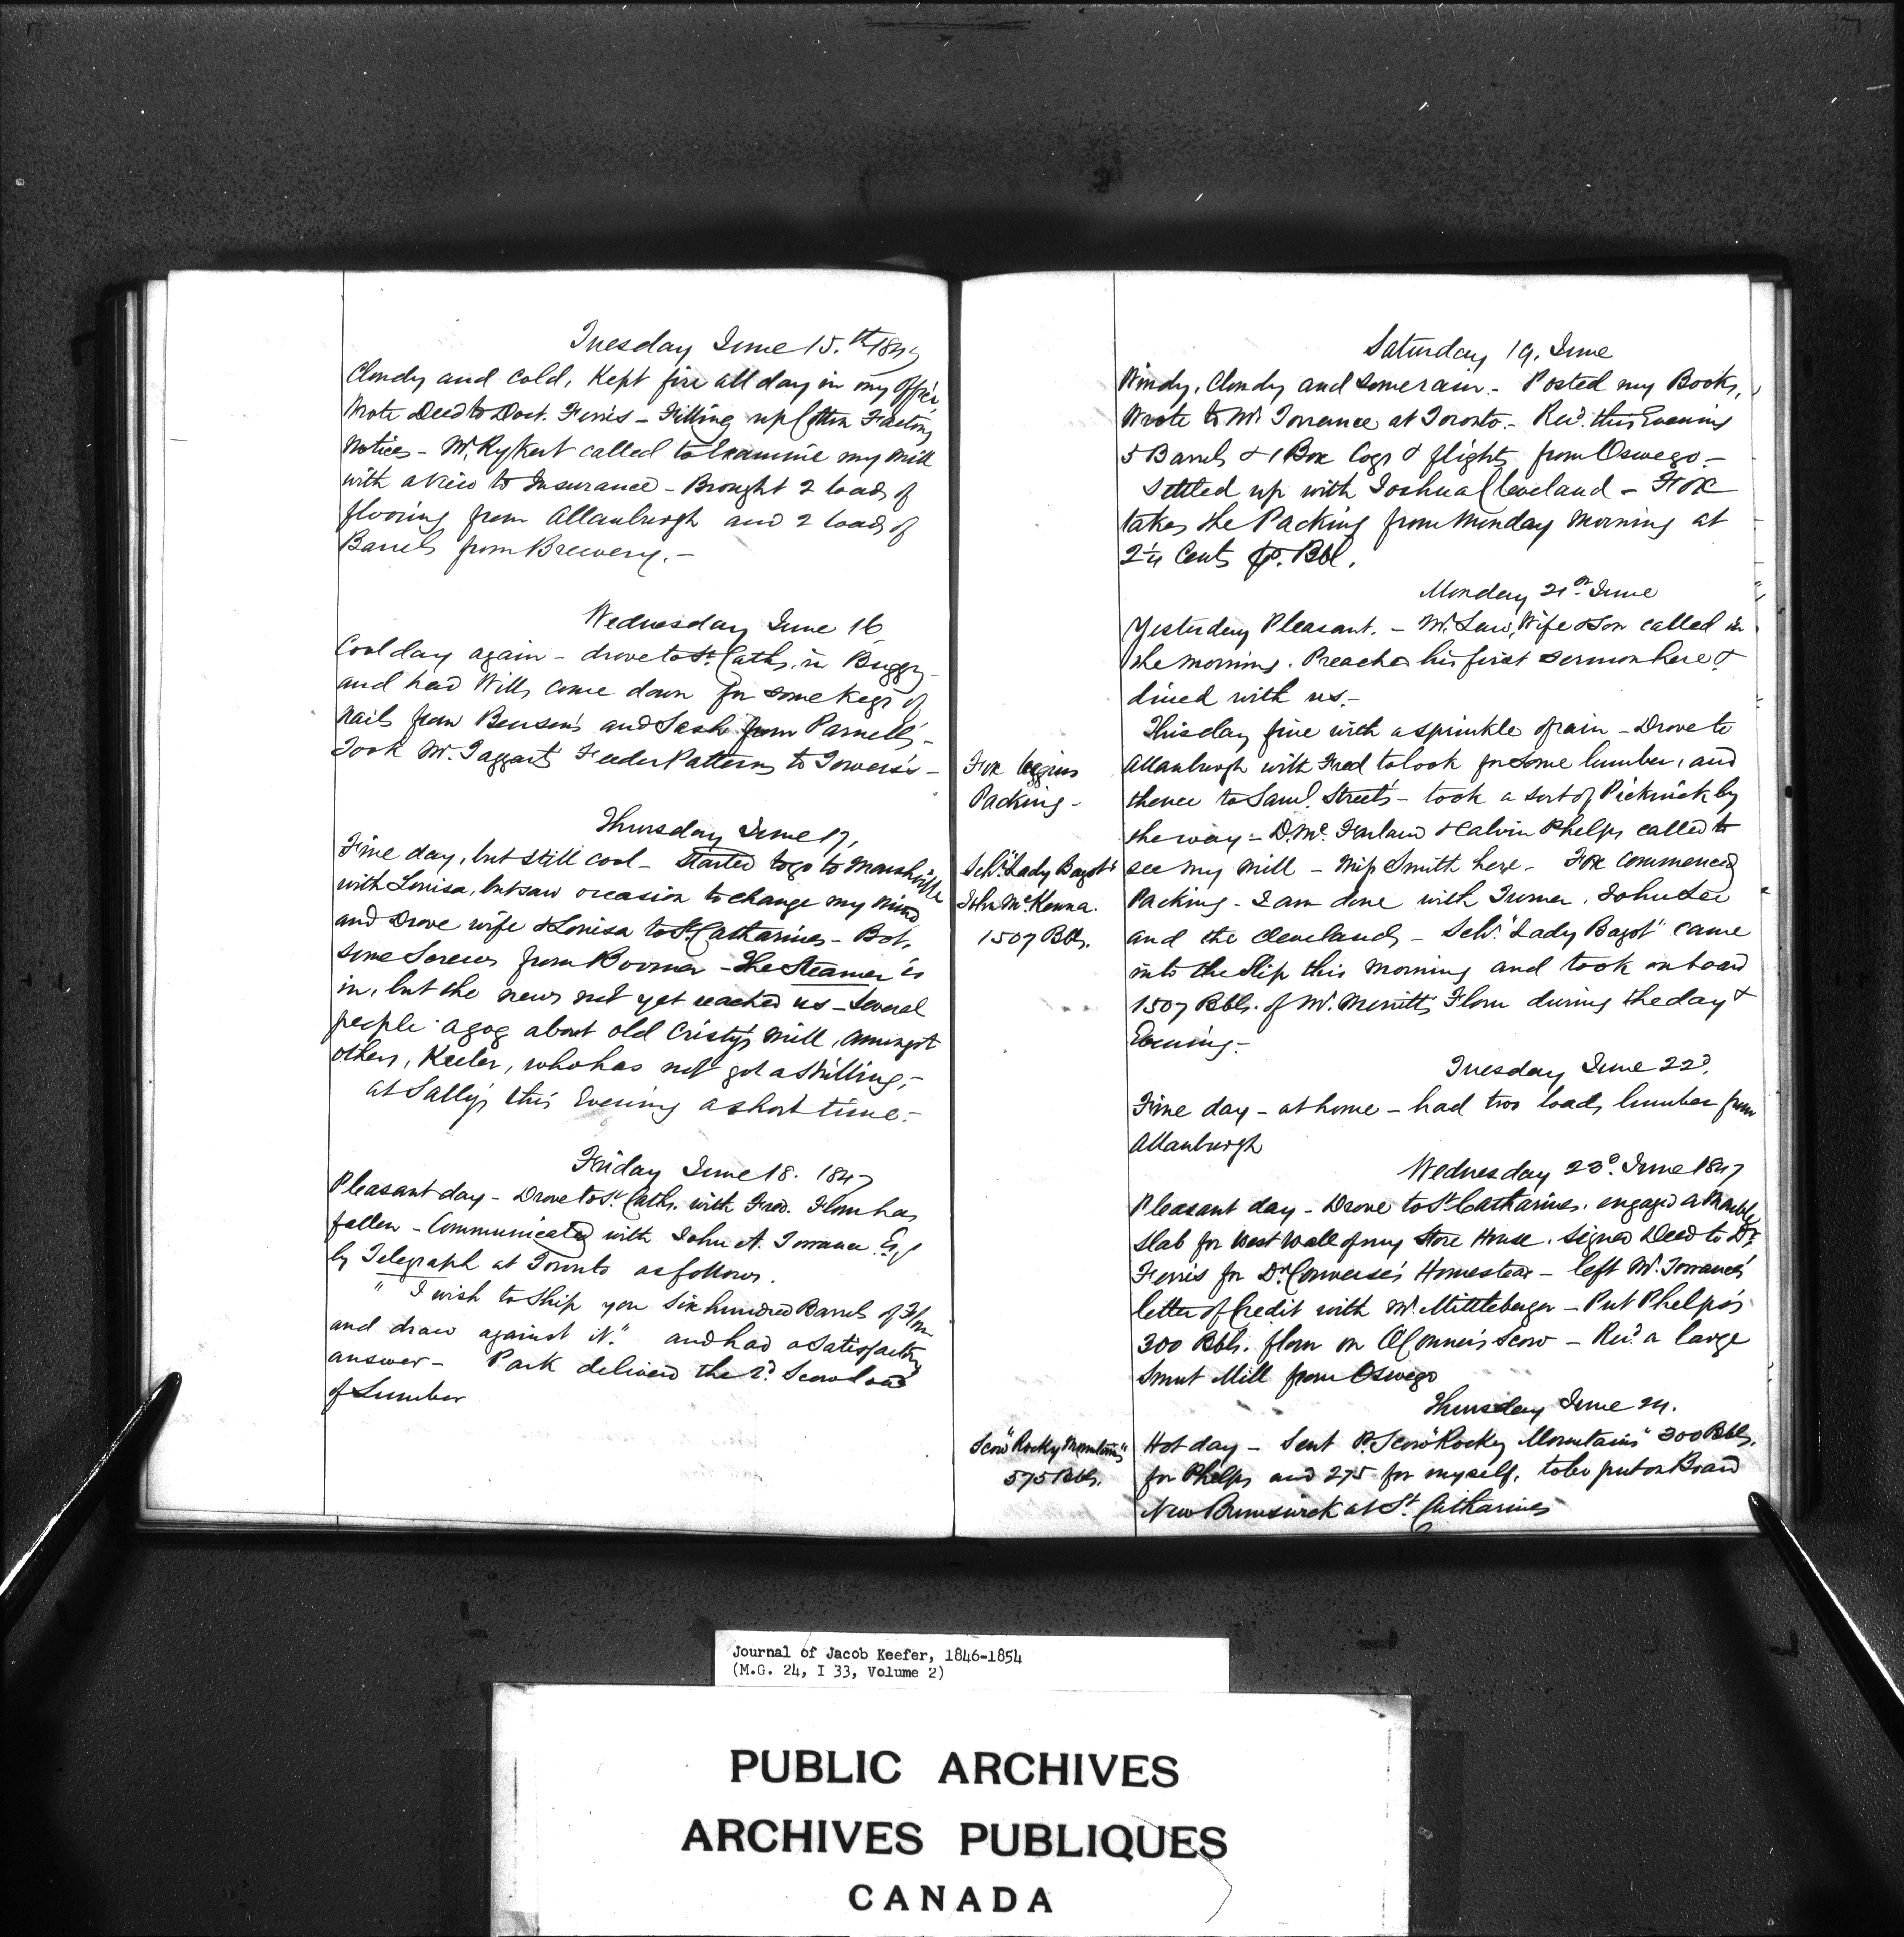 Tuesday June 15.th 1847
Cloudy and cold, Kept fire all day in my Office
Wrote Deed to Doct. Ferris - Filling up Cotton Factory
Notices - Mr. Rykert called to Examine my Mill
with a view to Insurance - Brought 2 loads of
flooring from Allanburgh and 2 loads of
Barrels from Brewery. -
Wednesday June 16
Cool day again - drove to St. Caths. in Buggy -
and had Wills come down for some kegs of
Nails from Benson's and Sash from Parnell's -
Took Mr. Taggart's Feeder Patterns to Towers's -
Thursday June 17,
Fine day, but still cool - Started to go to Marshville
with Louisa, but saw occasion to change my mind
and Drove wife & Louisa to St. Catharines - Bot.
some Screws from Boomer - The Steamer is
in, but the news not yet reached us - Several
people agog about old Cristy's Mill, amongst
others, Keeler, who has not got a shilling, -
at Sally's this Evening a short time. -
Friday June 18. 1847
Pleasant day - Drove to St. Caths. with Fred. Flour has
fallen - Communicated with John A. Torrance Esq
by Telegraph at Toronto as follows.
" I wish to Ship you Six hundred Barrels of Flour
and draw against it." and had a Satisfactory
answer - Park delivered the 2d. Scow load
of Lumber
Saturday 19, June
Windy, Cloudy and some rain - Posted my Books,
Wrote to Mr. Torrance at Toronto. - Recd. this Evening
5 Barrels & 1 Box Cogs & flights from Oswego. -
Settled up with Joshua Cleveland - Fox
takes the Packing from Monday Morning at
2¼ Cents p. Bbl.
Monday 21st June
Yesterday Pleasant. - Mr. Law, Wife & Son called in
the morning. Preached his first sermon here &
dined with us. -
This day fine with a sprinkle of rain - Drove to
Allanburgh with Fred to look for some lumber, and
thence to Saml. Street's - took a sort of Picknick by
the way - D. Mc. Farland & Calvin Phelps called to
see my Mill - Miss Smith here - Fox commenced
Packing - I am done with Turner, John Lee
and the Clevelands - Schr. "Lady Bagot" came
into the Slip this morning and took on board
1507 Bbls. of Mr. Merritt's Flour during the day &
Evening. -
Fox begins
Packing -
Schr. "Lady Bagot"
John McKenna.
1507 Bbls.
Tuesday June 22d.
Fine day - at home - had two loads lumber from
Allanburgh
Wednesday 23d. June 1847
Pleasant day - Drove to St. Catharines, engaged a Marble
Slab for West Wall of my Store House. Signed Deed to Dr.
Ferris for Dr. Converse's Homestead - left Mr. Torrance's
letter of Credit with Mr. Mittleberger - Put Phelps's
300 Bbls. flour on O'Conner's Scow - Recd. a large
Smut Mill from Oswego
Thursday June 24.
Scow "Rocky Mountains"
575 Bbls.
Hot day - Sent P. Scow "Rocky Mountains" 300 Bbls.
for Phelps and 275 for myself, to be put on Board
New Brunswick at St. Catharines
Journal of Jacob Keefer, 1846-1854
(M.G. 24, I 33, Volume 2)
PUBLIC ARCHIVES
ARCHIVES PUBLIQUES
CANADA